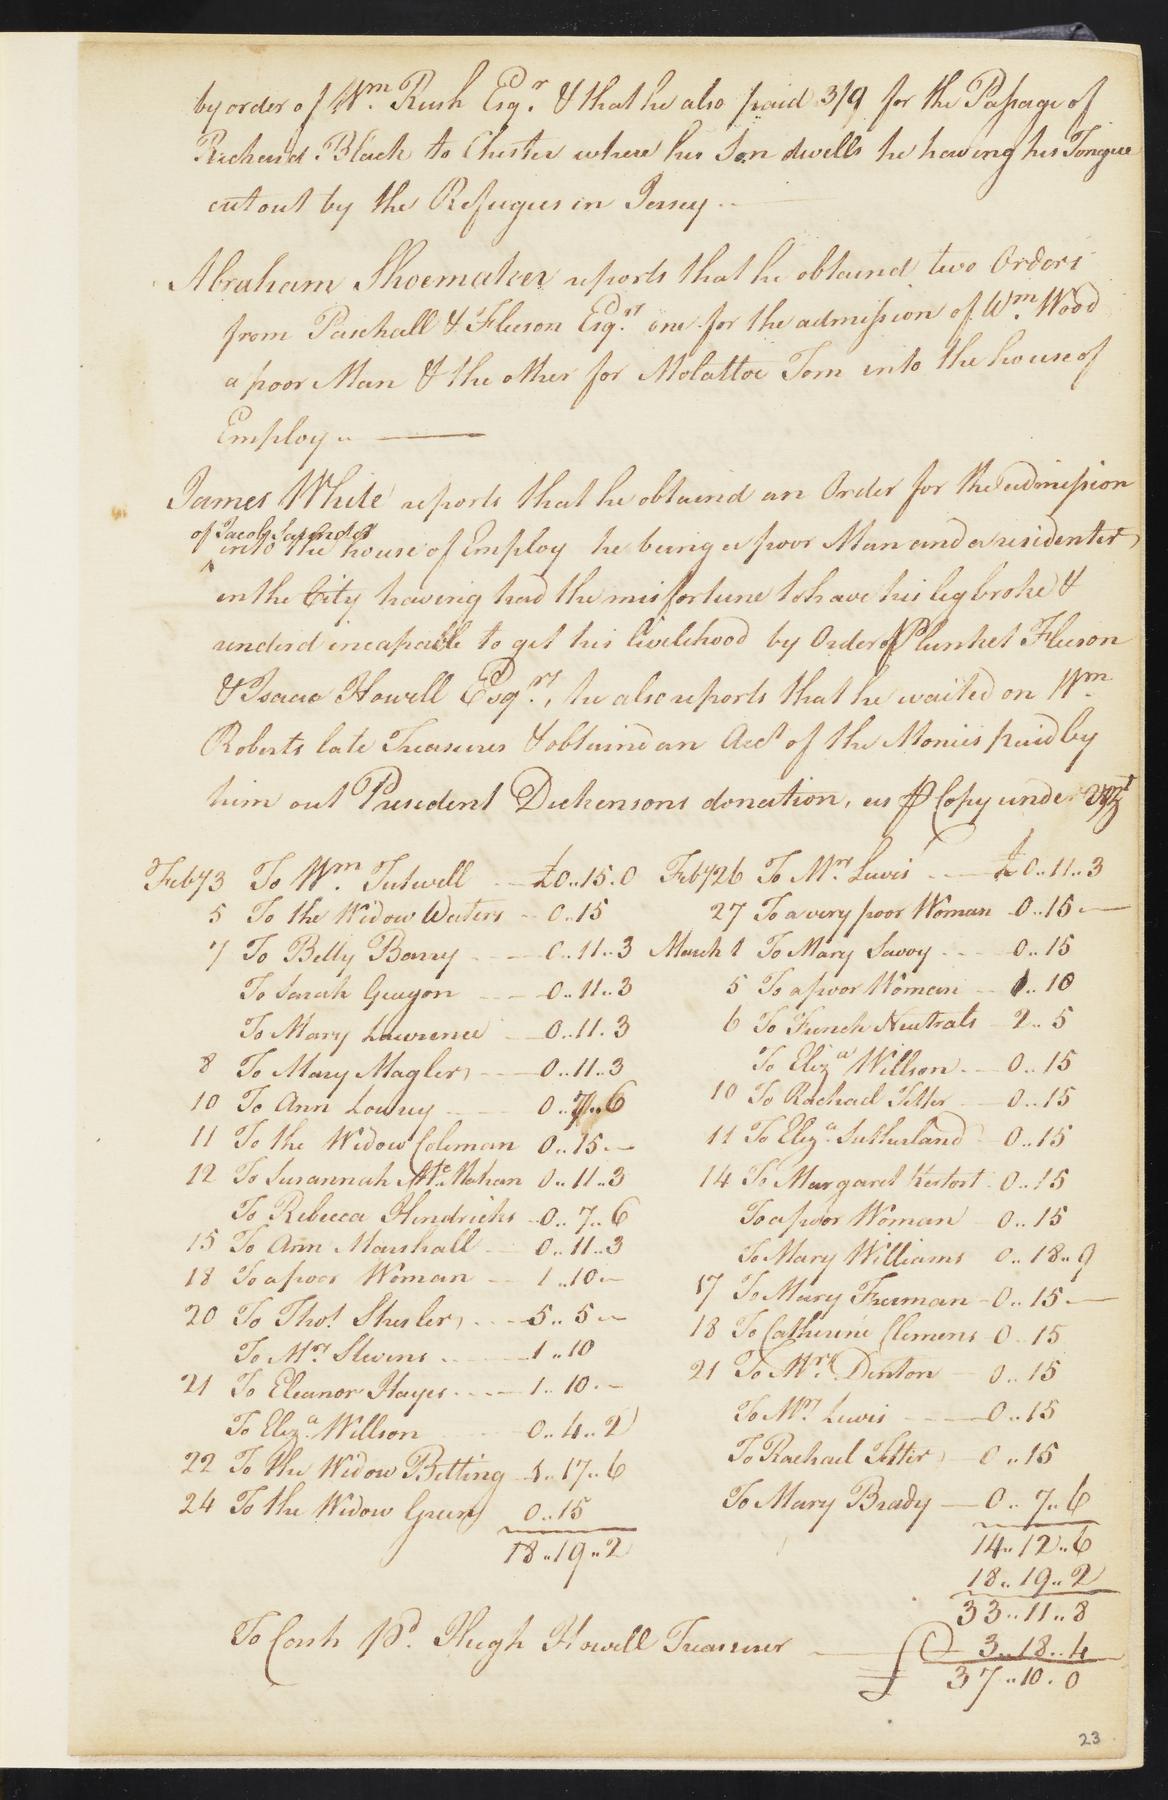 by order of Wm. Rush Esqr. & that he also paid 3/9 for the Passage of
Richard Black to Chester where his Son dwells he having his Tongue
cut out by the Refugees in Jersey
Abraham Shoemaker reports that he obtained two Orders
from Paschall & Fleeson Esqrs. one for the admission of Wm. Wood
a poor Man & the other for Molattoe Tom into the house of
Employ
James White reports that he obtaind an Order for the admission
of Jacob
into the house of Employ he being a poor Man and a residenter
in the City having had the misfortune to have his leg broke &
renderd incapable to get his livelihood by Order of Plunket Fleeson
& Isaac Howell Esqrs. he also reports that he waited on Wm.
Roberts late Treasurer & obtained an Acct of the Monies paid by
him out President Dickensons donation, as ⅌ Copy under vizt
Feby 3 To Wm. Tutwell £0..15.0
5 To the Widow Waters 0..15
7 To Betty Barry 0..11..3
To Sarah Guyon 0..11..3
To Mary Lawrence 0..11.3
8 To Mary Magler 0..11..3
10 To Ann Lowry 0..7..6
11 To the Widow Coleman 0..15.-
12 To Susannah Mc.Mahan 0..11..3
To Rebecca Hendricks 0..7..6
15 To Ann Marshall 0..11..3
18 To a poor Woman 1..10.-
20 To Thos. Shesler 5..5.-
To Mrs. Stevens 1..10
21 To Eleanor Hayes 1..10.-
To Eliza. Willson 0..4..2
22 To the Widow Betting 1..17..6
24 To the Widow Green 0..15
18..19..2
Feby 26 To Mrs. Lewis £0..11..3
27 To a very poor Woman 0..15-
March 1 To Mary Savoy 0..15
5 To a poor Woman 1..10
6 To French Neutrals 2..5
To Eliza Willson 0..15
10 To Rachael Tetter 0..15
11 To Eliza. Sutherland 0..15
14 To Margaret 0..15
To a poor Woman 0..15
To Mary Williams 0..18..9
17 To Mary Freeman 0..15-
18 To Catherine Clemens 0..15
21 To Mrs. Denton 0..15
To Mrs. Lewis 0..15
To Rachael Tetter 0..15
To Mary Brady 0..7..6
14..12..6
18..19..2
33..11..8
To Cash pd. Hugh Howell Treasurer 3..18..4
£ 37..10.0
23